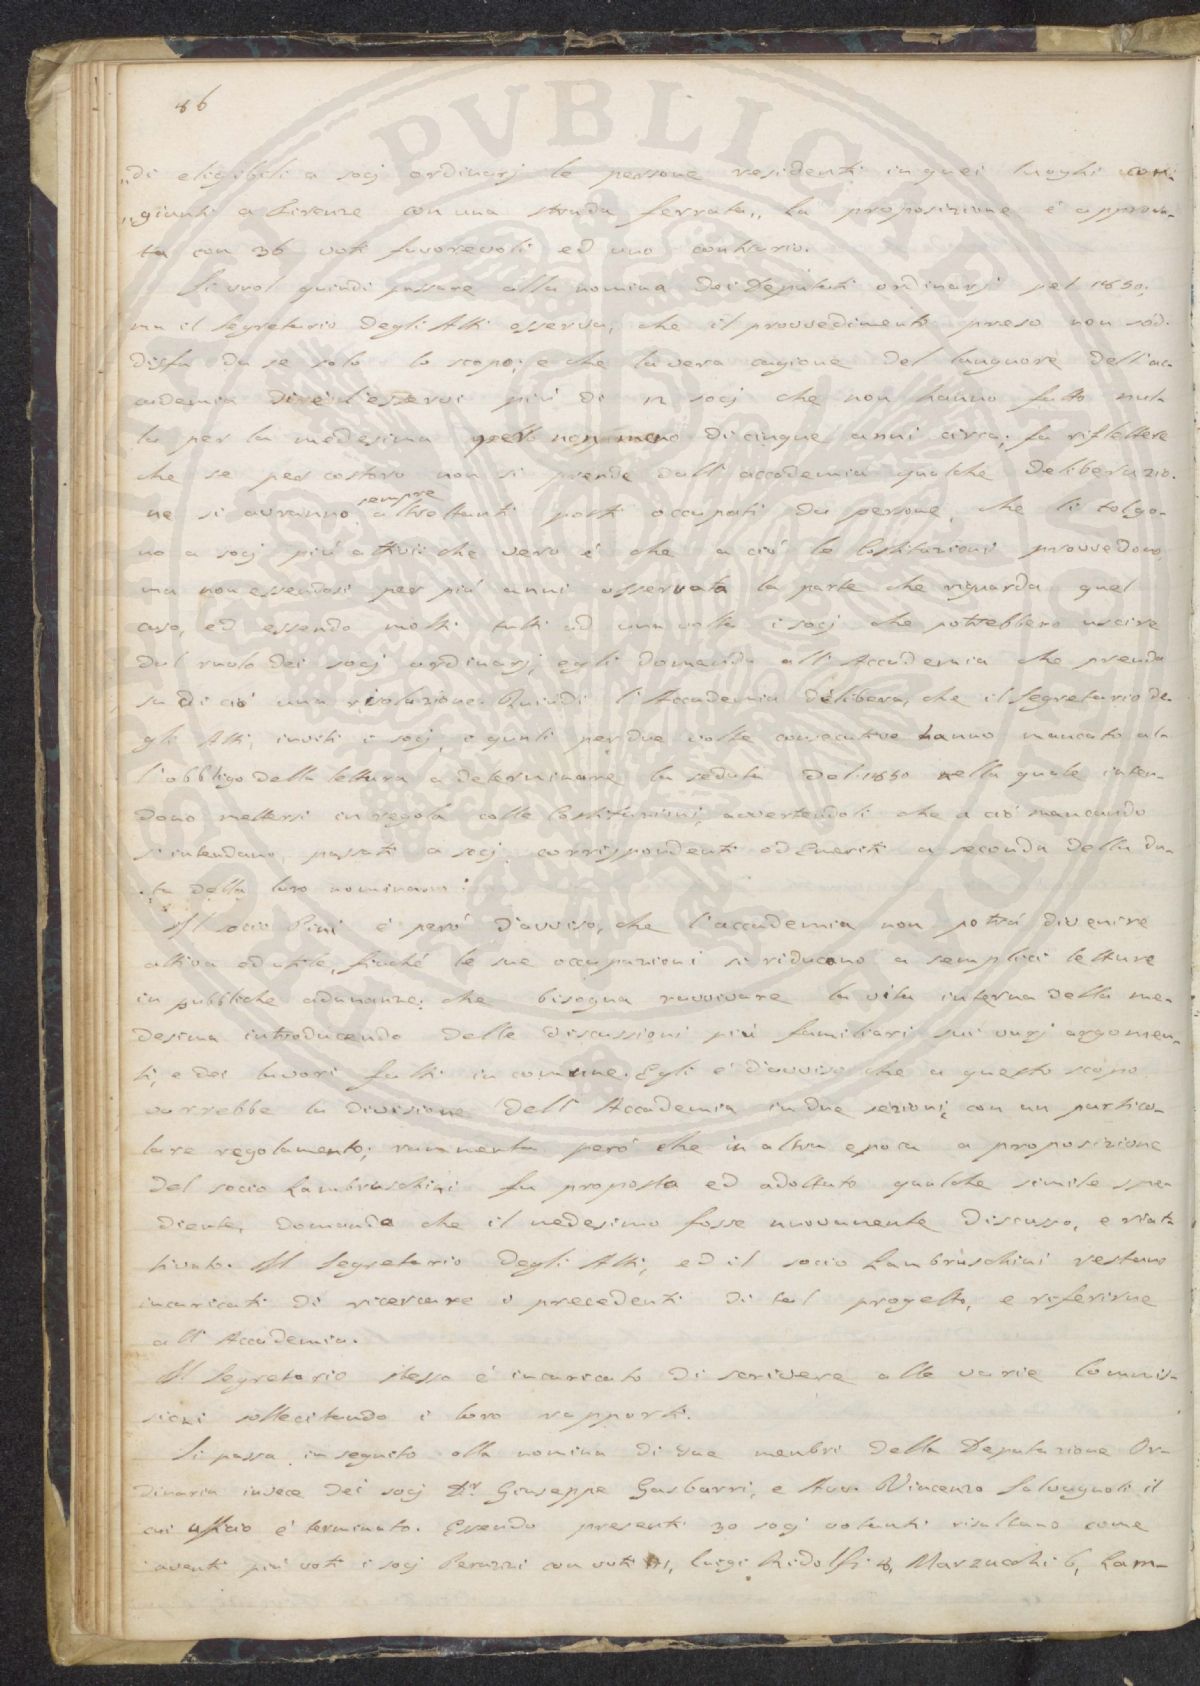 86
„di eligibili a socj ordinarj le persone residenti in quei luoghi con-
„giunti a Firenze con una strada ferrata„ La proposizione é approva-
ta con 36 voti favorevoli ed uno contrario.
Si vuol quindi passare alla nomina dei Deputati ordinarj pel 1850;
ma il Segretario degli Atti osserva, che il provvedimento preso non sod-
disfa da se solo lo scopo; e che la vera cagione del languore dell'ac-
cademia di esservi piú di 12 socj che non hanno fatto nul-
la per la medesima nemmeno di cinque anni circa; fa riflettere
che se per costoro non si prende dall'accademia qualche deliberazio-
ne si avranno sempre altrettanti posti occupati da persone, che li tolgo-
no a socj piú attivi: che vero é che a ció le Costituzioni provvedono,
ma non essendosi per piú anni osservata la parte che riguarda quel
caso, ed essendo molti tutti ad una volta i socj che potrebbero uscire
dal ruolo dei socj ordinarj, egli domanda all'Accademia che prenda
su di ció una risoluzione. Quindi l'Accademia delibera, che il Segretario de-
gli Atti, inviti i socj, i quali per due volte consecutive hanno mancato al-
l'obbligo della lettura a determinare la seduta del 1850 nella quale inten-
dono mettersi in regola colle Costituzioni, avvertendoli che a ció mancando
s'intendano passati a socj corrispondenti od Emeriti a seconda della da-
ta della loro nomina
Il socio Pini é peró d'avviso, che l'accademia non potrá divenire
attiva ed utile, finché le sue occupazioni si riducono a semplici letture
in pubbliche adunanze; che bisogna ravvivare la vita interna della me-
desima introducendo delle discussioni piú familiari sui varj argomen-
ti, e dei lavori fatti in comune. Egli é d'avviso che a questo scopo
varrebbe la divisione dell'Accademia in due sezioni, con un partico-
lare regolamento; rammenta peró che in altra epoca a proposizione
del socio Lambruschini fu proposto ed adottato qualche simile spe-
diente, domanda che il medesimo fosse nuovamente discusso, e riat-
tivato. Il Segretario degli Atti, ed il socio Lambruschini restano
incaricati di ricercare i precedenti di tal progetto, e riferirne
all'Accademia.
Il Segretario stesso é incaricato di scrivere alle varie Commis-
sioni sollecitando i loro rapporti.
Si passa in seguito alla nomina di due membri della Deputazione Or-
dinaria invece dei socj Dr. Giuseppe Gasbarri, e Avv. Vincenzo Salvagnoli il
cui uffico é terminato. Essendo presenti 30 socj votanti risultano come
aventi piú voti i socj Peruzzi con voti 11, Luigi Ridolfi 8, Marzucchi 6, Lam-